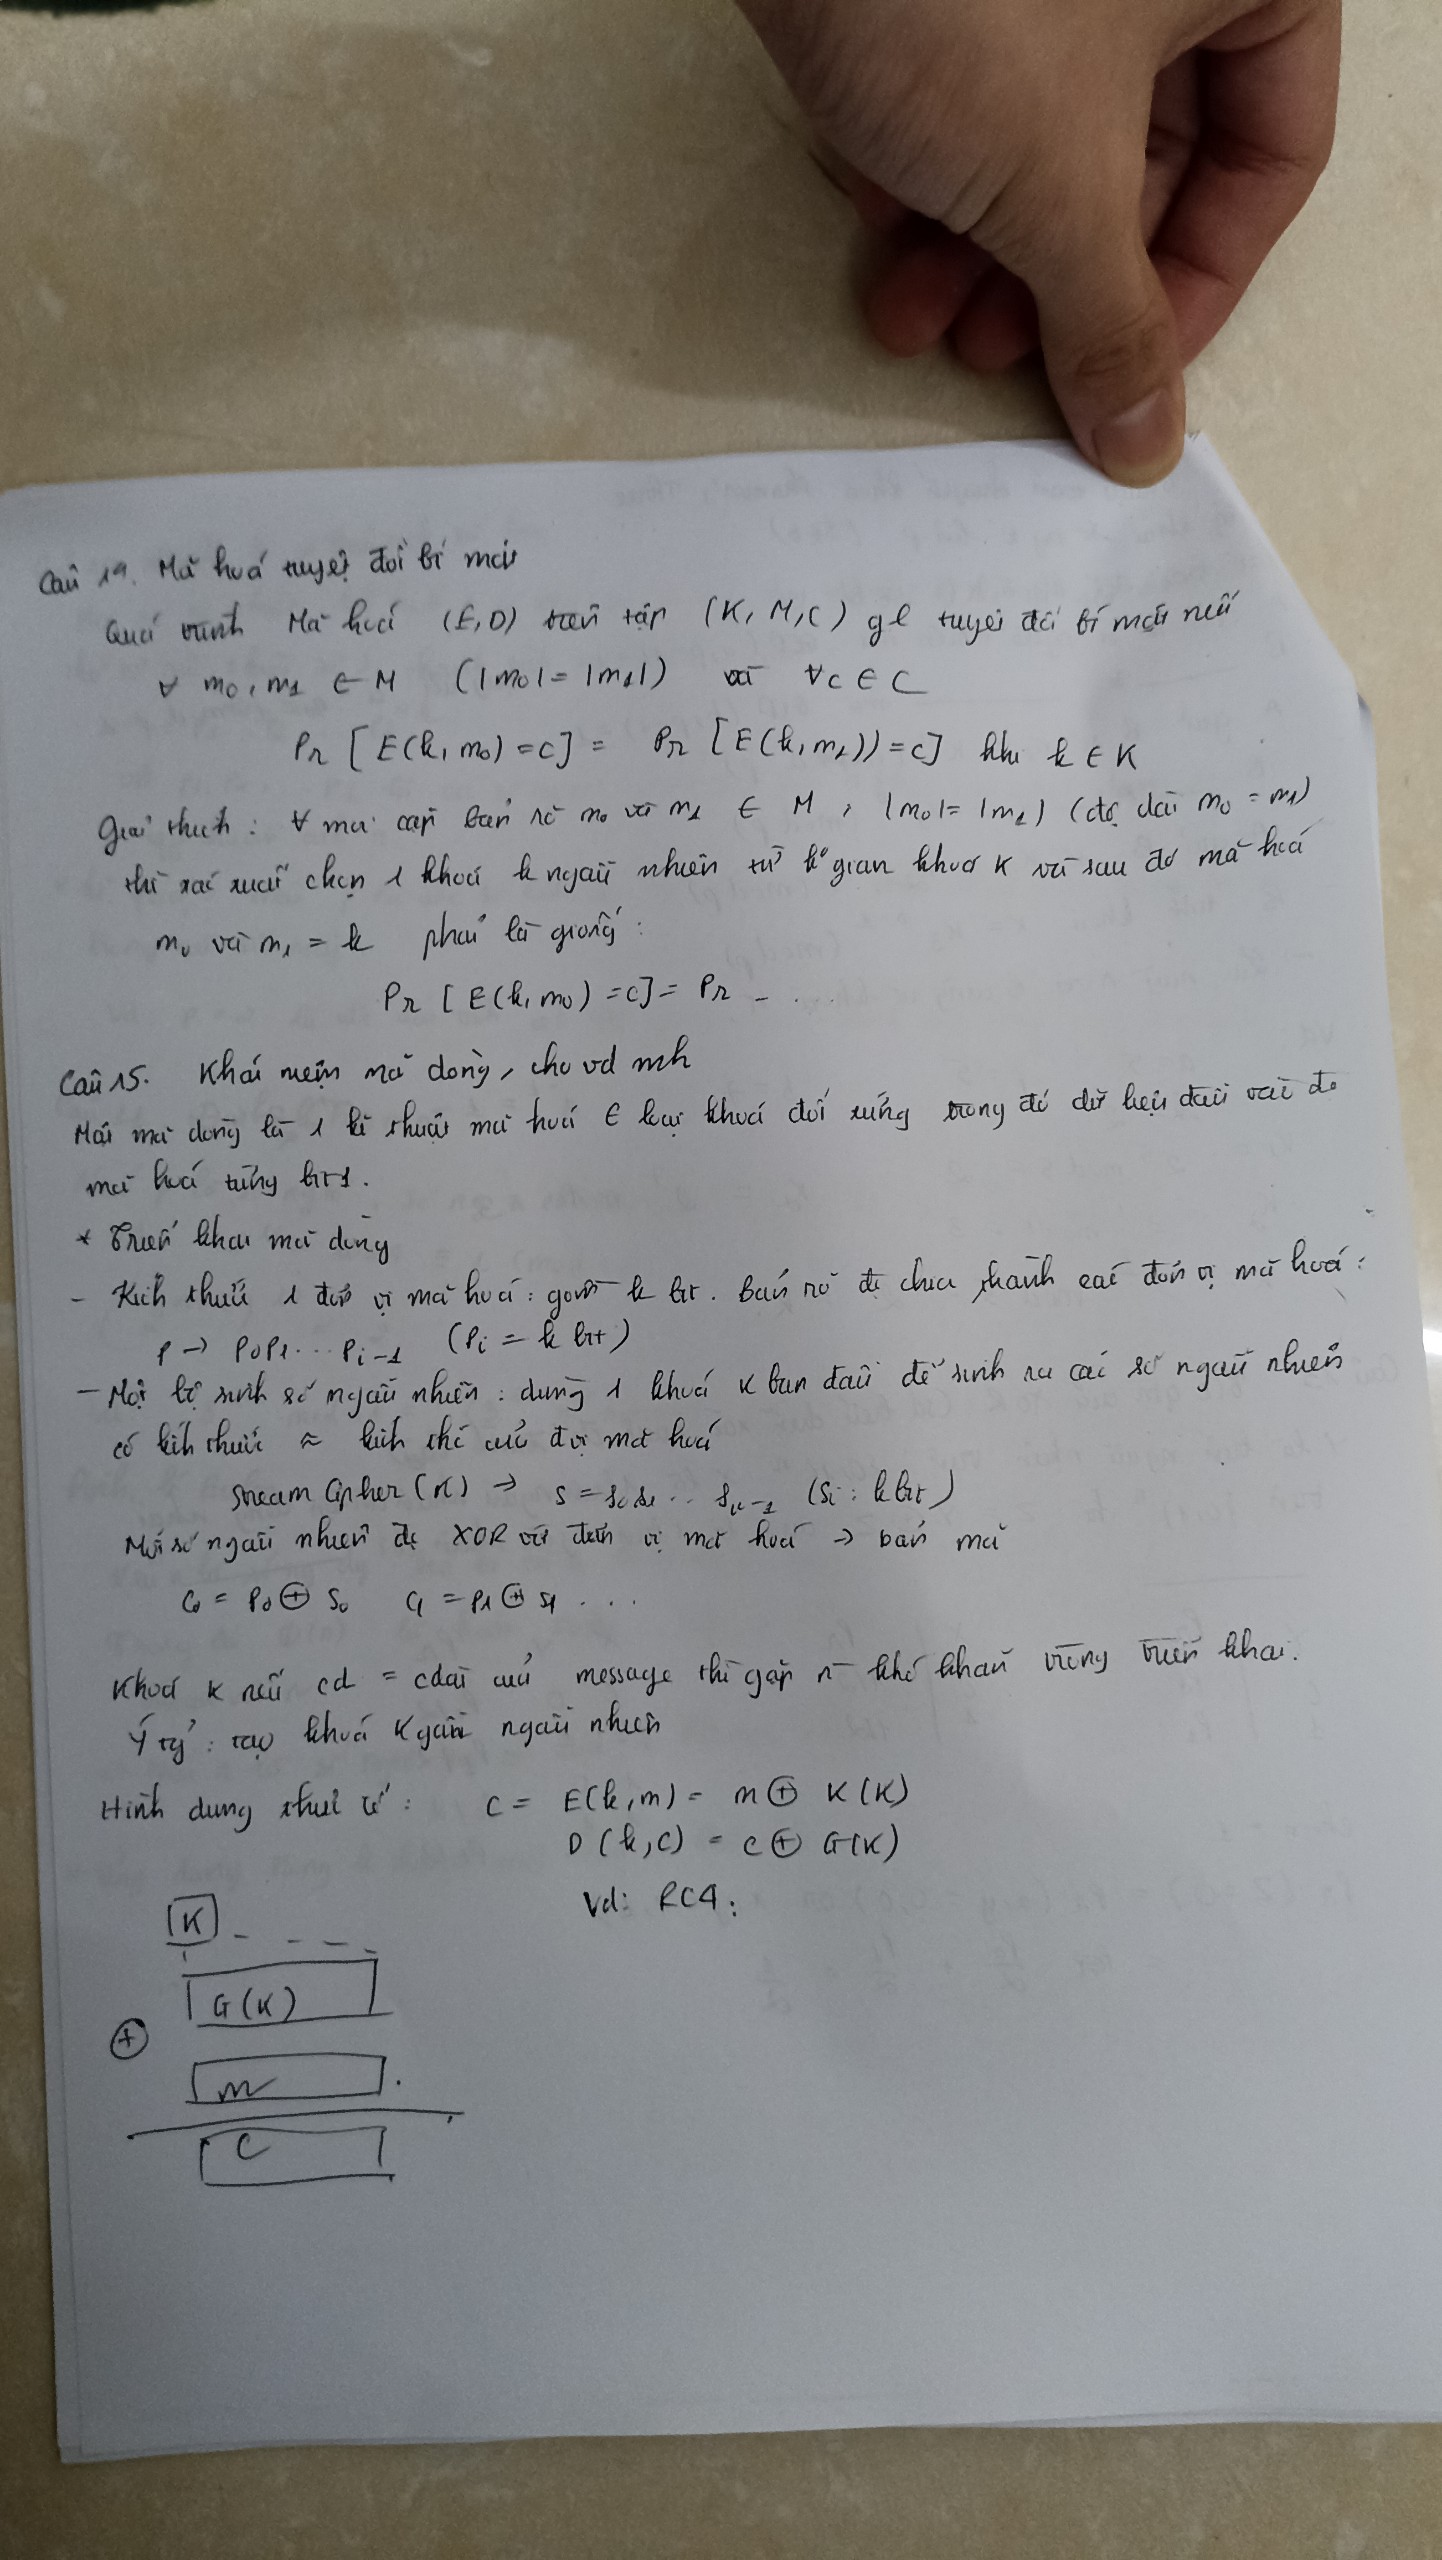 Câu 14. Mã hoá tuyệt đối bí mật
Quá trình Mã hoá (E,D) trên tập (K, M, C) gl tuyệt đối bí mật nếu
∀ m0, m1 ∈ M (|m0| = |m1|) và ∀c ∈ C
Pr [E(k, m0) = c] = Pr [E(k, m1)) = c] khi k ∈ K
Giải thích : ∀ mọi cặp bản rõ m0 và m1 ∈ M, |m0| = |m1| (độ dài m0 = m1)
thì xác xuất chọn 1 khoá k ngẫu nhiên từ k° gian khoá K và sau đó mã hoá
m0 và m1 = k phải là giống :
Pr [E(k, m0) = c] = Pr - ...
Câu 15. Khái niệm mã dòng, cho vd mh
Mật mã dòng là 1 kĩ thuật mã hoá ∈ loại khoá đối xứng trong đó dữ liệu đầu vào đc
mã hoá từng bit 1.
* Triển khai mã dòng
- Kích thước 1 đơn vị mã hoá : gồm k bit. Bản rõ đc chia thành các đơn vị mã hoá :
P → P0P1... Pi-1 (Pi = k bit)
- Một bộ sinh số ngẫu nhiên : dùng 1 khoá K ban đầu để sinh ra các số ngẫu nhiên
có kích thước ≈ kích thc của đvị mã hoá
Stream Cipher (K) → S = S0S1 .. Sn-1 (Si : k bit)
Mỗi số ngẫu nhiên đc XOR với đơn vị mã hoá → bản mã
C0 = P0 ⊕ S0 C1 = P1 ⊕ S1 ...
Khoá K nếu cd = cdài của message thì gặp n` khó khăn trong triển khai.
Ý tg : tạo khoá K gần ngẫu nhiên
Hình dung thực tế : C = E(k, m) = m ⊕ K(K)
D (k, c) = c ⊕ G(K)
Vd: RC4 :
K
G(K)
⊕
m
C